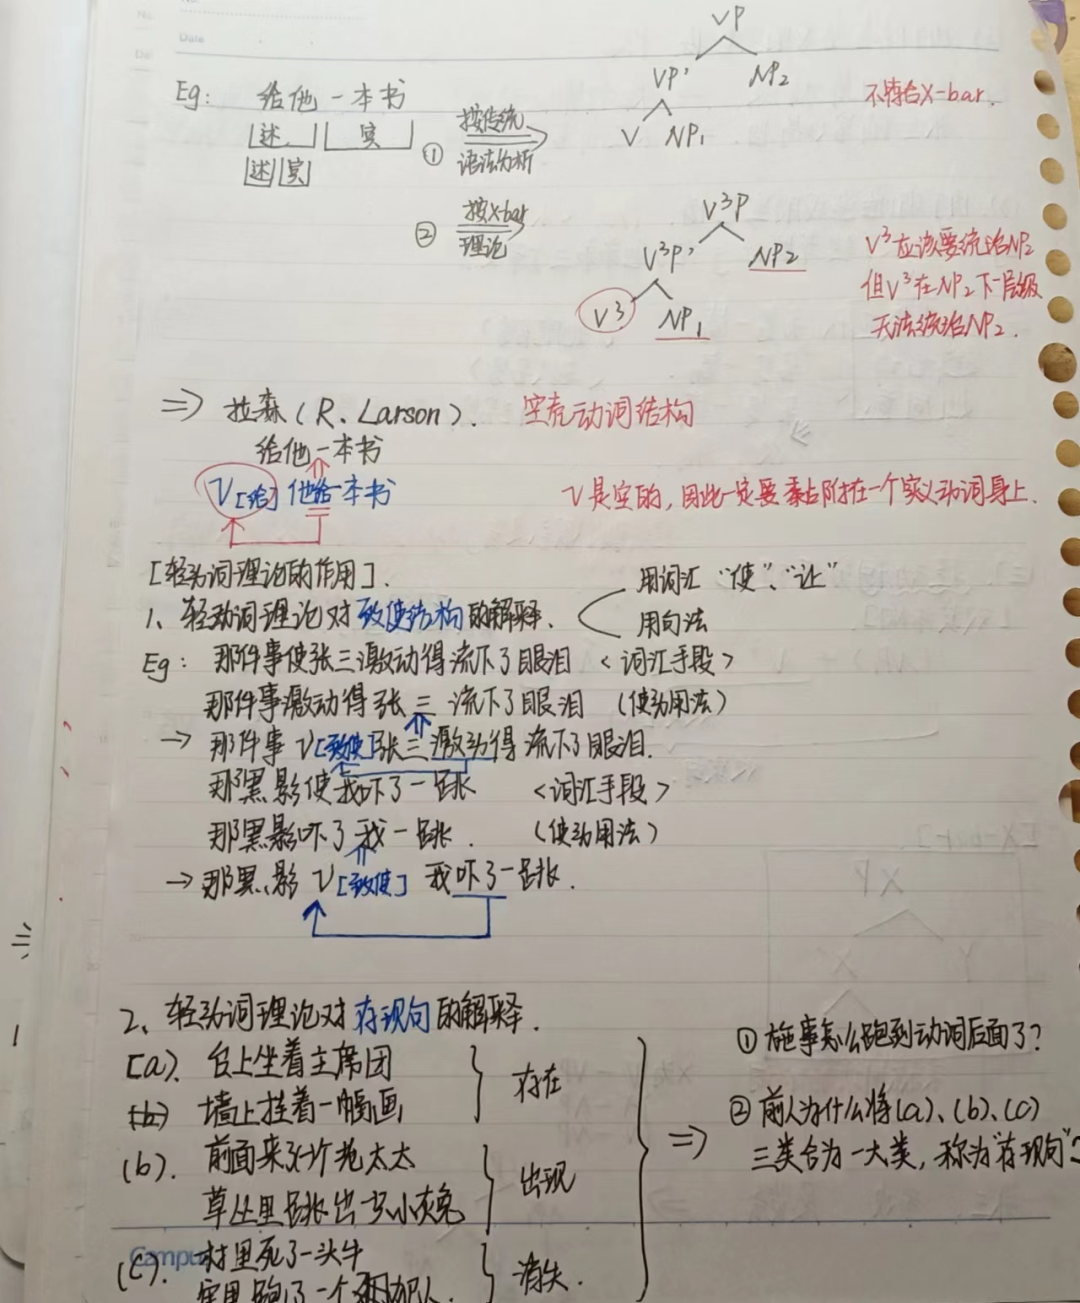 Date
VP
VP' NP2
V NP1
不符合X-bar.
Eg: 给他一本书
述 宾
述 宾
① 按传统
语法分析
② 按X-bar
理论
V³P
V³P' NP2
V³ NP1
V³应该要统治NP2
但V³在NP2下一层级
无法统治NP2.
=> 拉森(R. Larson). 空壳动词结构
给他一本书
V[给] 他给一本书
V是空的,因此一定要黏附在一个实义动词身上.
[轻动词理论的作用].
用词汇“使”、“让”
1、轻动词理论对致使结构的解释.
用句法
Eg: 那件事使张三激动得流下了眼泪 <词汇手段>
那件事激动得张三流下了眼泪 (使动用法)
→ 那件事V[致使]张三激动得流下了眼泪.
那黑影使我吓了一跳 <词汇手段>
那黑影吓了我一跳. (使动用法)
→ 那黑影V[致使] 我吓了一跳.
2、轻动词理论对存现句的解释.
[a). 台上坐着主席团
墙上挂着一幅画
存在
(b). 前面来了一个老太太
草丛里跳出一只小灰兔
出现
(c). 村里死了一头牛
里跑了一个犯人.
消失.
① 施事怎么跑到动词后面了?
=> ② 前人为什么将(a)、(b)、(c)
三类合为一大类,称为“存现句”?
Campus